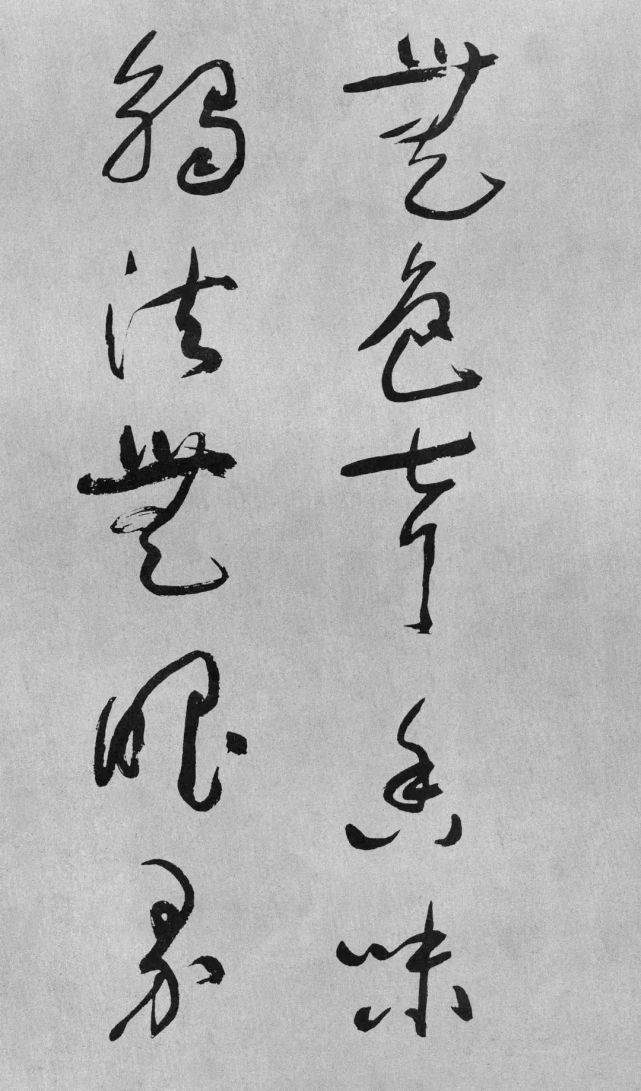 無色聲香味
觸法無眼界